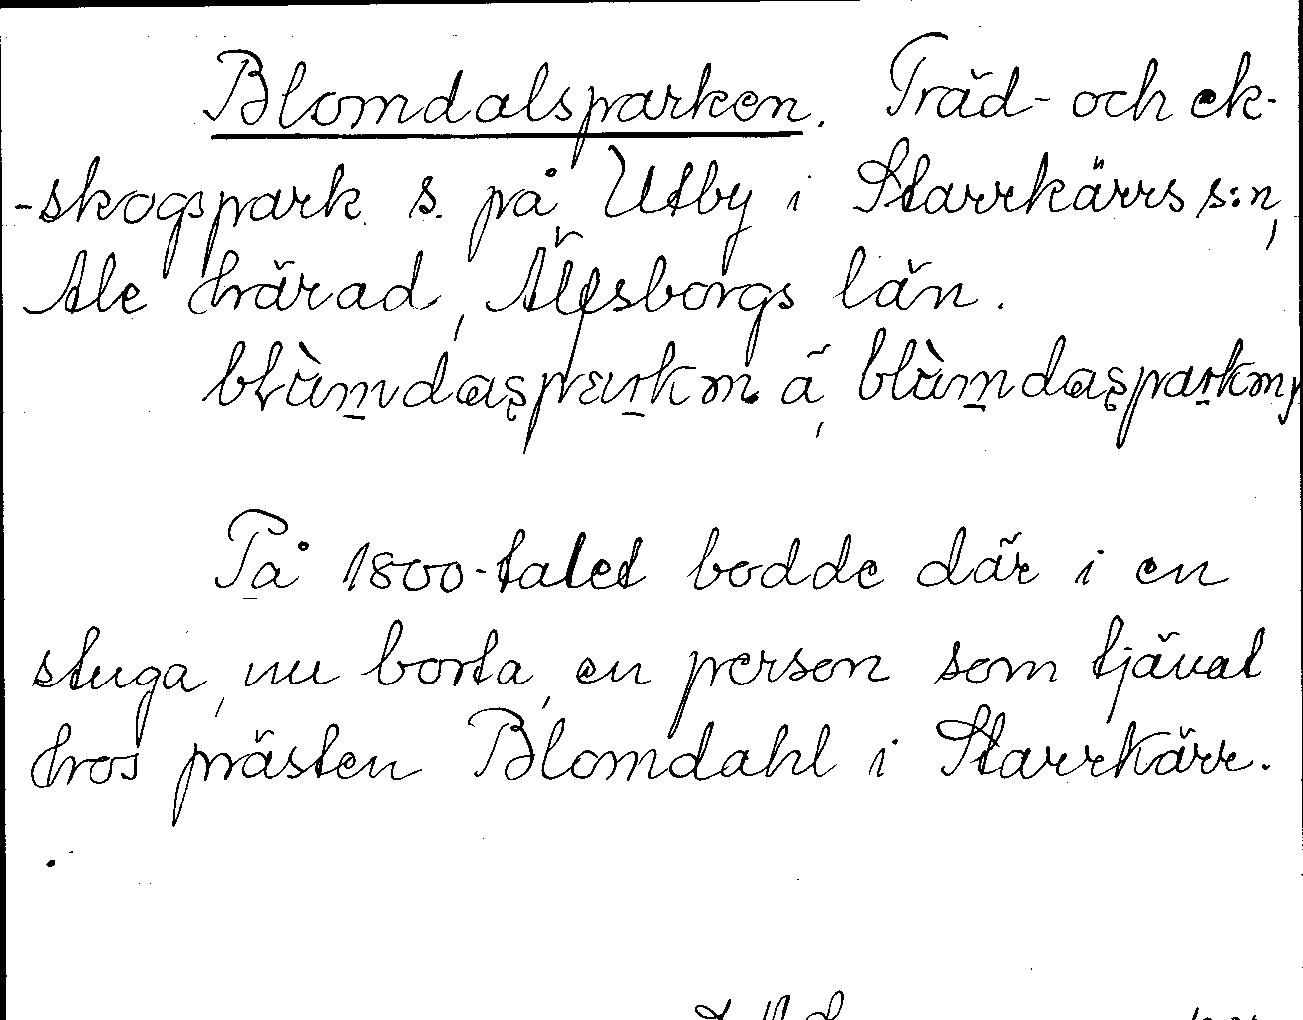 Blomdalsparken. Träd- och ek-
-skogspark s. på Utby i Starrkärrs s:n,
Ale härad, Älfsborgs län.
På 1800-talet bodde där i en
stuga, nu borta, en person som tjänat
hos prästen Blomdahl i Starrkärr.